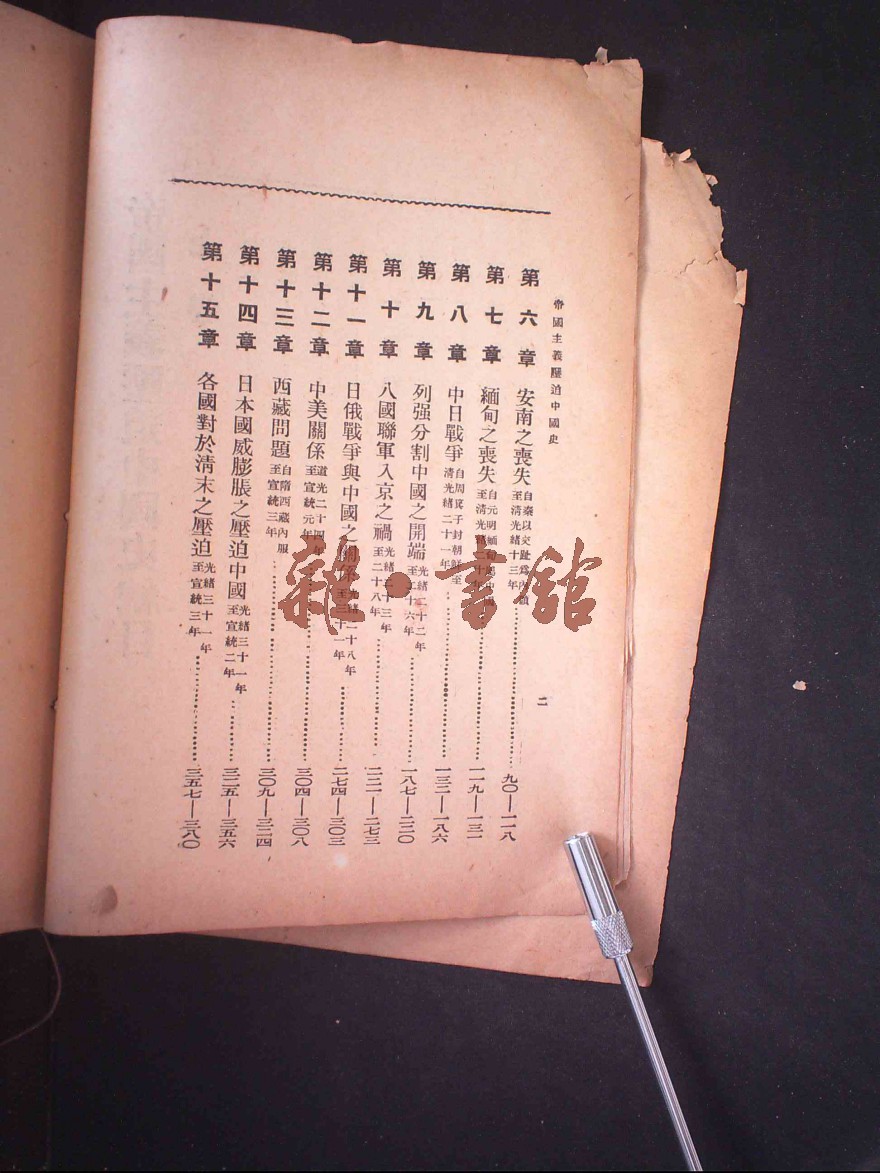 帝國主義壓迫中國史
二
第六章 安南之喪失 自秦以交趾爲內屬至清光緒十三年 九〇—一一八
第七章 緬甸之喪失 自元明緬甸 至清光緒二十年 一一九—一三一
第八章 中日戰爭 自周箕子封朝鮮至清光緒二十一年 一三二—一八六
第九章 列强分割中國之開端 光緒二十二年至二十六年 一八七—二二〇
第十章 八國聯軍入京之禍 光緒二十三年至二十八年 二二一—二七三
第十一章 日俄戰爭與中國之關係 光緒二十八年至三十一年 二七四—三〇三
第十二章 中美關係 道光二十四年至宣統元年 三〇四—三〇八
第十三章 西藏問題 自隋西藏內服至宣統三年 三〇九—三二四
第十四章 日本國威膨脹之壓迫中國 光緒三十一年至宣統二年 三二五—三五六
第十五章 各國對於清末之壓迫 光緒三十一年至宣統三年 三五七—三八〇
雜·書館